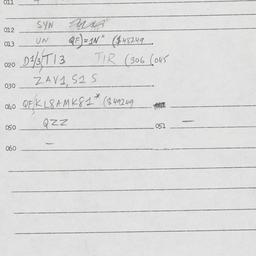 011
012 SYN
013 UN QF)=1N" ($48249
020 D1/3/T13 TIR (306 (045
030 ZAV1, S1 S
040 QF/KL8AMK81* ($49249
050 QZZ 051 —
060 —